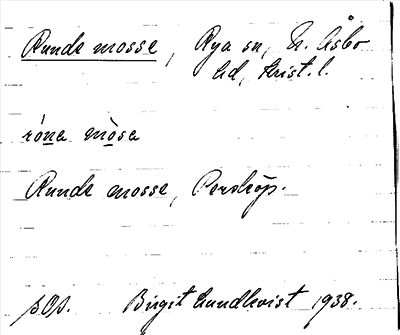 Runde mosse, Rya sn, N. Åsbo
hd, Krist. l.
róne mòse
Runde mosse, Perstorp.
pop. Birgit Lundkvist 1938.